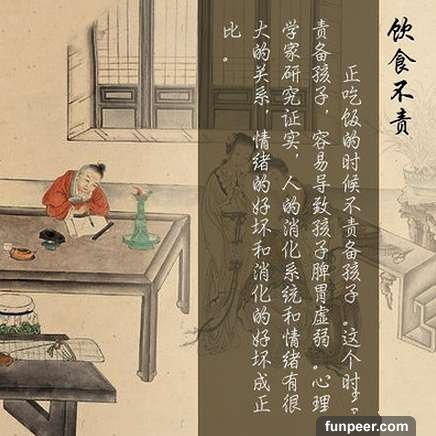 饮食不责
正吃饭的时候不责备孩子。这个时
责备孩子，容易导致孩子脾胃虚弱。心理
学家研究证实，人的消化系统和情绪有很
大的关系，情绪的好坏和消化的好坏成正
比。
funpeer.com